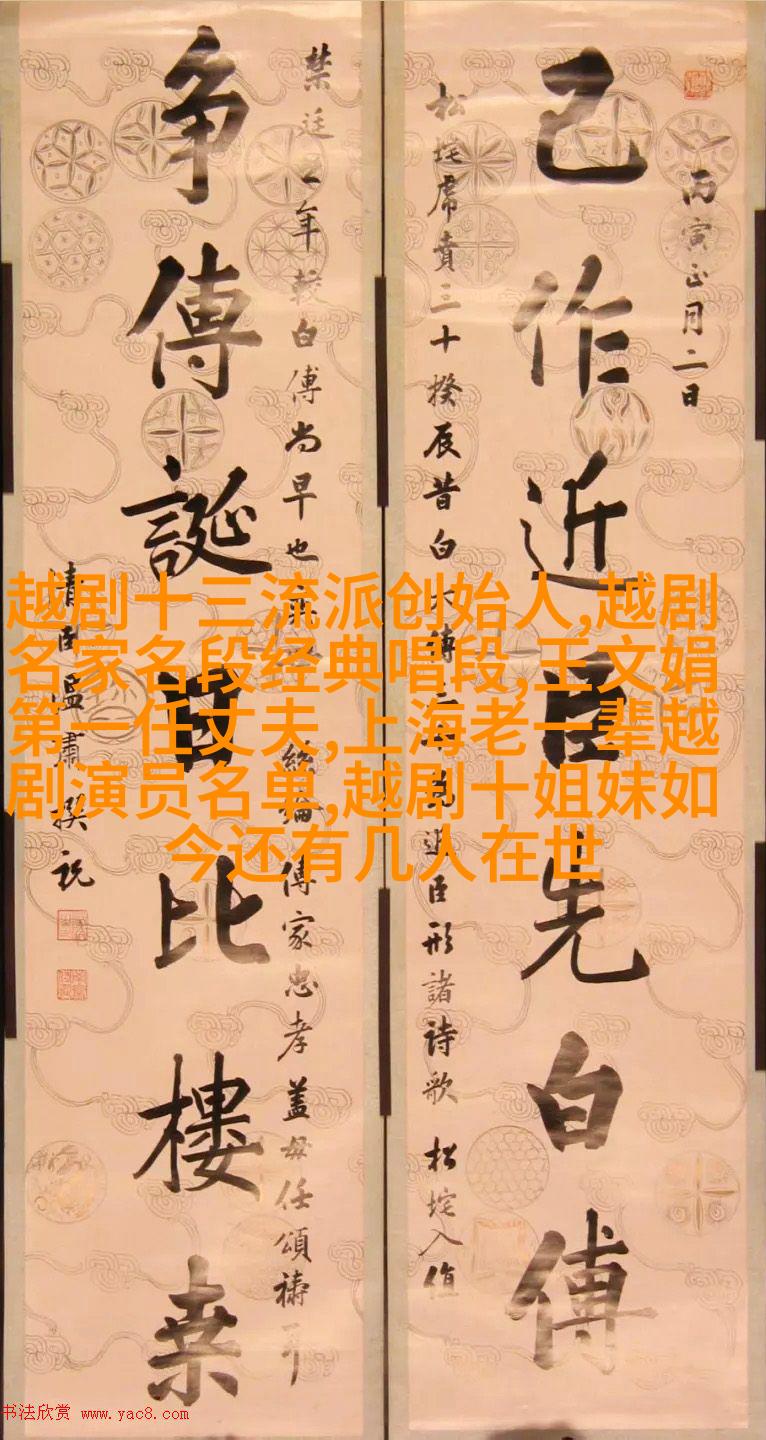 丙寅正月二日
松垞席賁三十揆辰昔白
近臣形諸詩歌 松垞入值
已作近臣先白傅
禁廷五年較白傅尚早也
傳家忠孝蓋毋任頌禱
争傳誕比樓桒
清臣温肅撰祝
越剧十三流派创始人,越剧
名家名段经典唱段,王文娟
第一任丈夫,上海老一辈越
剧演员名单,越剧十姐妹如
今还有几人在世
书法欣赏 www.yac8.com